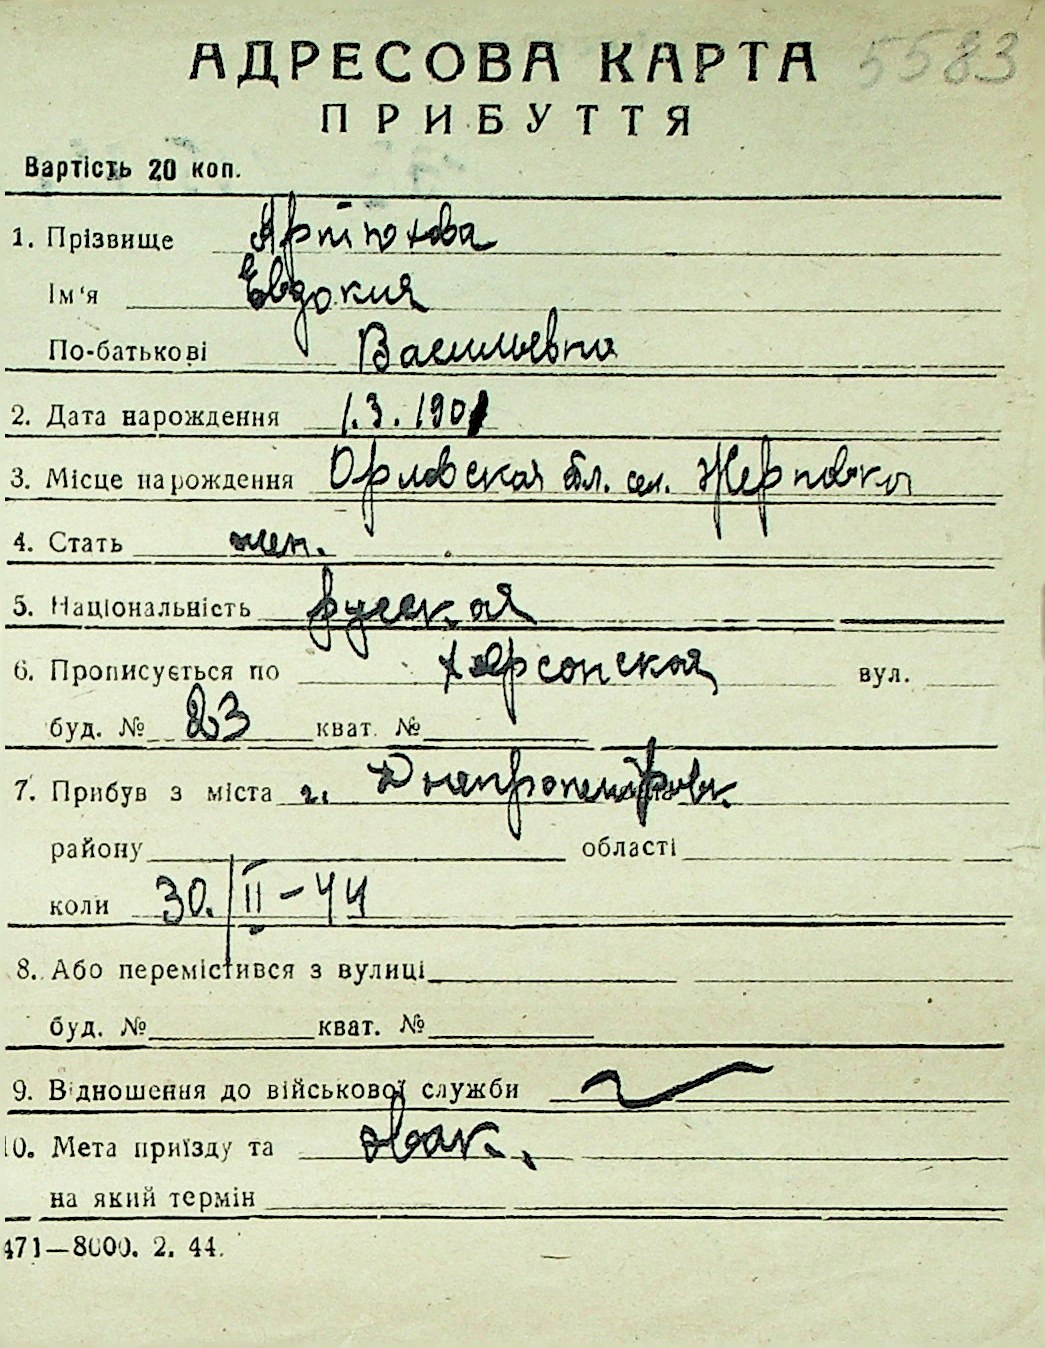 АДРЕСОВА КАРТА 5583
ПРИБУТТЯ
Вартість 20 коп.
1. Прізвище Артюхова
Ім'я Евдокия
По-батькові Васильевна
2. Дата народження 1.3.1901
3. Місце народження Орловская обл. сел. Жерновка
4. Стать жен.
5. Національність русская
6. Прописується по Херсонская вул.
буд. № 23 кват. №
7. Прибув з міста г. Днепропетровск
району області
коли 30. II - 44
8. Або перемістився з вулиці
буд. № кват. №
9. Відношення до військової служби
10. Мета приїзду та эвак.
на який термін
471—8000. 2. 44.